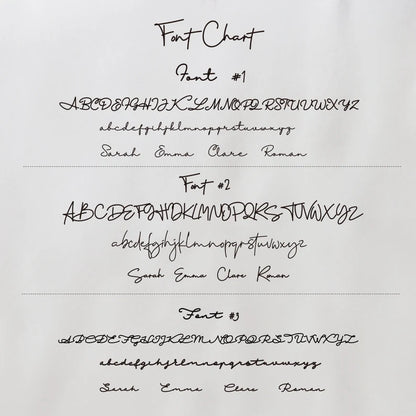 Font Chart
Font #1
ABCDEFGHIJKLMNOPQRSTUVWXYZ
abcdefgihjklmnopqrstuvwxyz
Sarah Emma Clare Roman
Font #2
ABCDEFGHIJKLMNOPQRSTUVWXYZ
abcdefgihjklmnopqrstuvwxyz
Sarah Emma Clare Roman
Font #3
ABCDEFGHIJKLMNOPQRSTUVWXYZ
abcdefgihjklmnopqrstuvwxyz
Sarah Emma Clare Roman